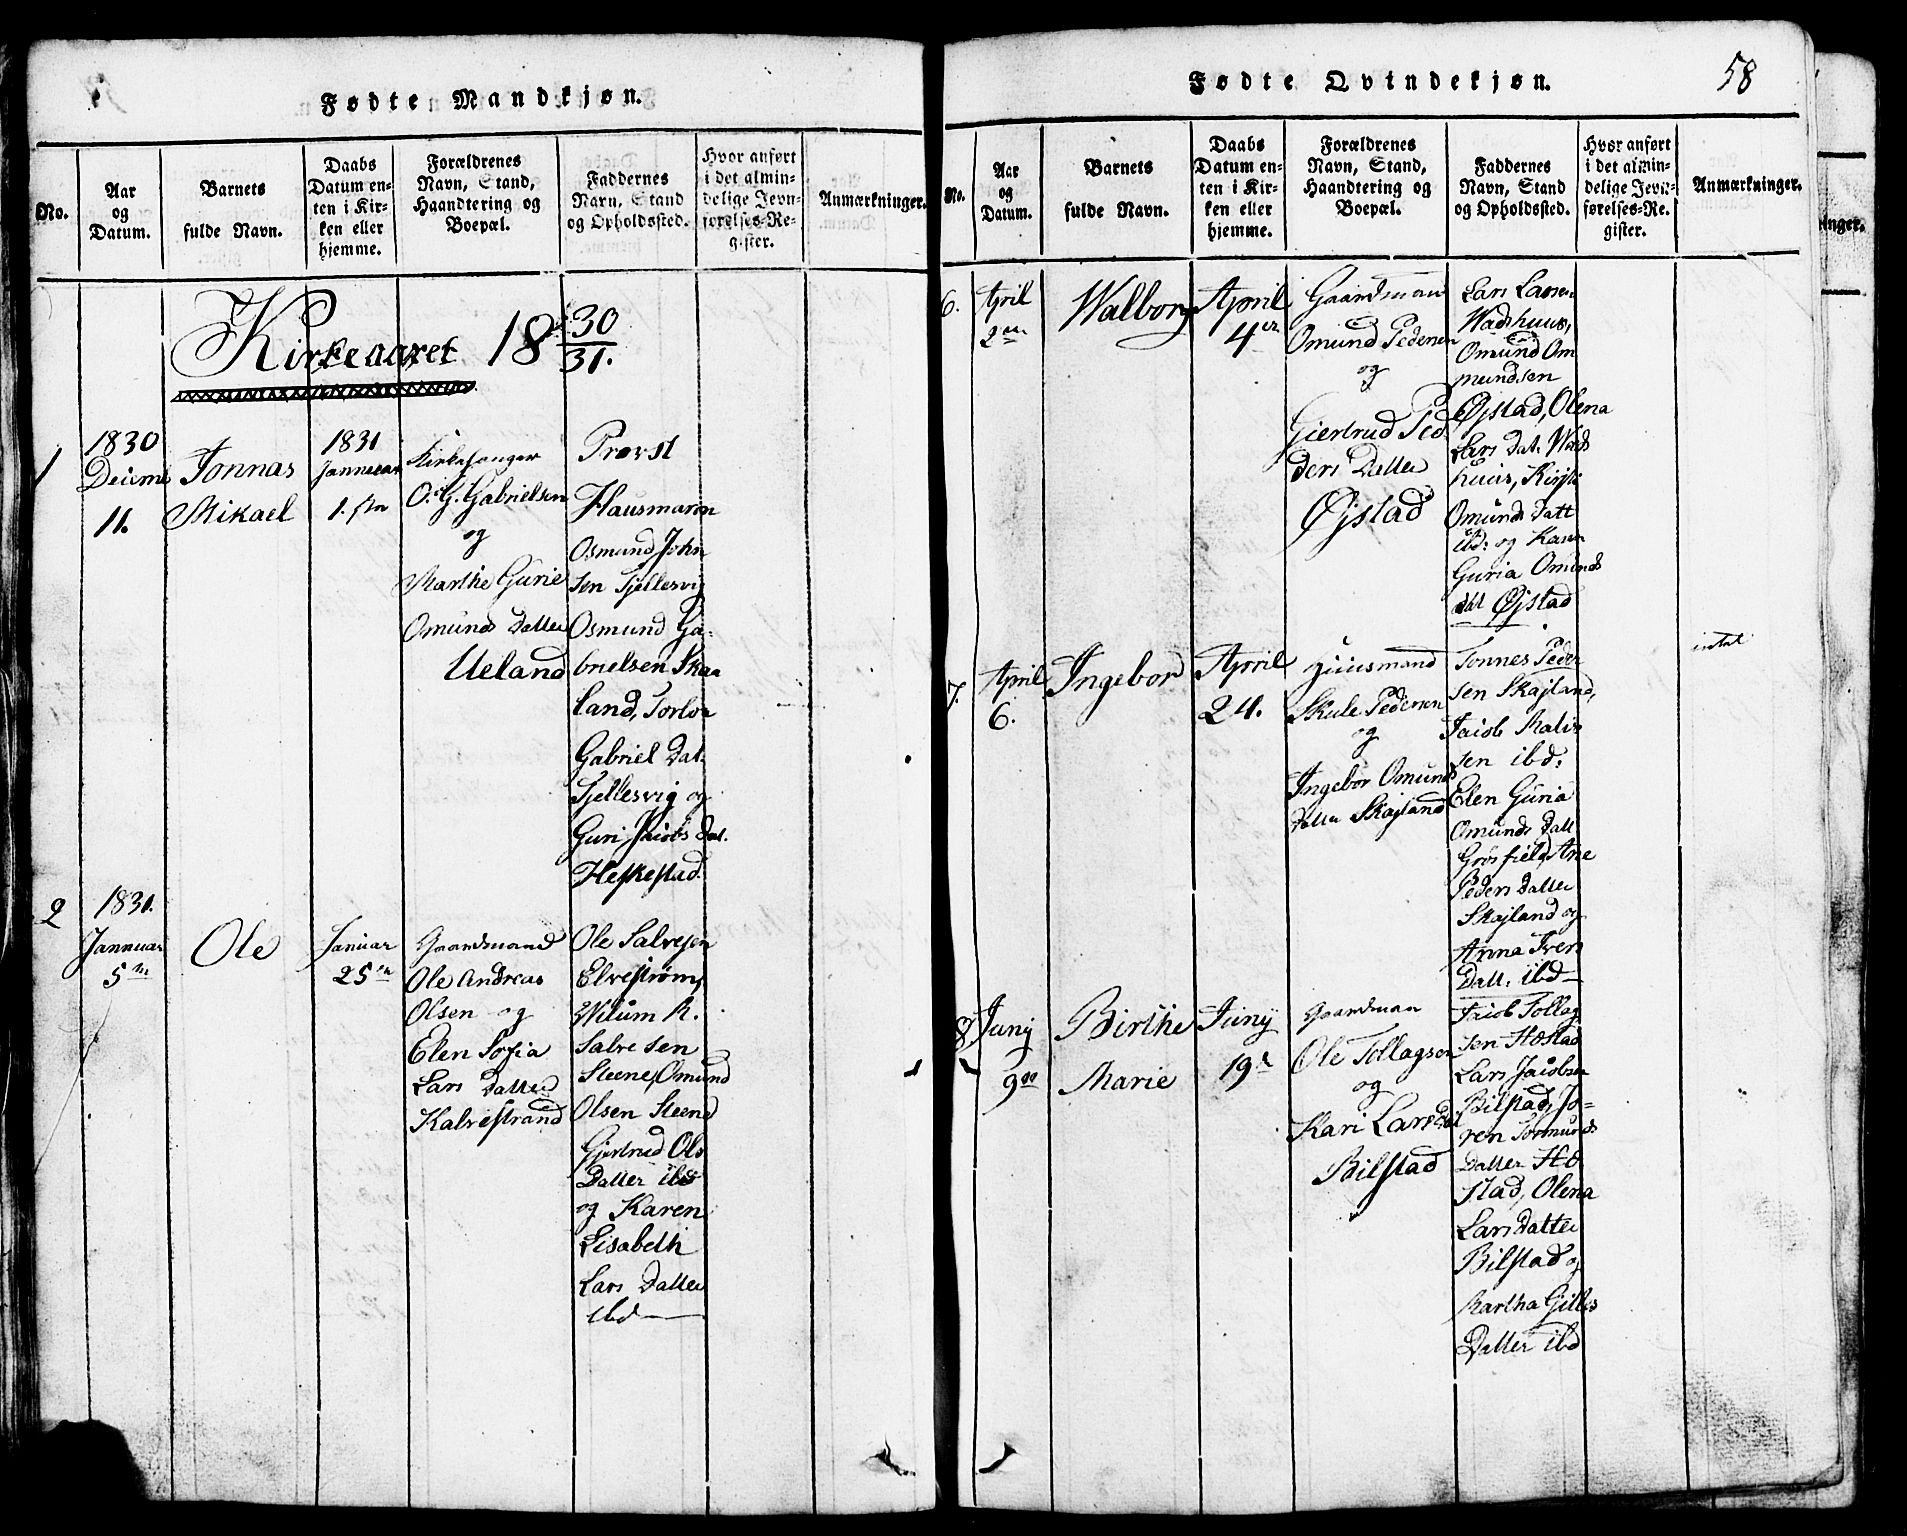 Fødte Mandkjøn.
No.
Aar
og
Datum.
Barnets
fulde Navn.
Daabs
Datum en-
ten i Kir-
ken eller
hjemme.
Forældrenes
Navn, Stand,
Haandtering og
Boepæl.
Faddernes
Navn, Stand
og Opholdssted.
Hvor anført
i det almin-
delige Jevn-
førelses-Re-
gister.
Anmærkninger.
Kirkeaaret 18 30/31.
1
1830
11.
Tonnas
Mikael
1831
Kirkesanger
O. G. Gabrielsen
og
Marthe Gurie
Omunds Datter
Ueland
Provst
Hausmann
Osmund John
sen Tjellesvig
Osmund Ga-
brielsen Skaa
land, Torbor
Gabriel Dat.
Tjellesvig og
Guri Jacobs Dat.
Heskestad.
2
1831.
Januar
5
Ole
Januar
25
Gaardmand
Ole Andreas
Olsen og
Elen Sofia
Lars Datter
Kalvestrand
Ole Salvesen
Elvestrøm,
Wilum A.
Salvesen
Steene, Omund
Olsen Steene
Gjertrud Ols
Datter ibd
og Karen
Lisabeth
Lars Datter
ibd
Fødte Qvindekjøn.
58
No.
Aar
og
Datum.
Barnets
fulde Navn.
Daabs
Datum en-
ten i Kir-
ken eller
hjemme.
Forældrenes
Navn, Stand,
Haandtering og
Boepæl.
Faddernes
Navn, Stand
og Opholdssted.
Hvor anført
i det almin-
delige Jevn-
førelses-Re-
gister.
Anmærkninger.
inger.
6.
April
2
Walborg
April
4
Gaardman
Omund Pedersen
og
Giertrud Ped
ders Datter
Øjstad
Lars Larsen
Wadshuus,
Omund Om
mundsen
Øjstad, Olena
Lars Dat. Wads
huus, Kirsti
Omunds Datt
ibd: og Karn
Guria Omunds
dat Øjstad
7.
April
6.
Ingebor
April
24.
Huusmand
Skule Pedersen
og
Ingebor Omunds
Datter Skajland
Tonnes Peder
sen Skajland,
Jacob
sen ibd:
Elen Guria
Omunds Datt
Grøsfield, Ane
Peders Datter
Skajland og
Anna Iven
Datt. ibd
intat
8
Junij
9
Birthe
Marie
Junij
19
Gaardman
Ole Tollagsen
og
Kari Lars Dat
Bilstad
Jacob Tollag
sen Høstad
Lars Jacobsen
Bilstad, So-
ren Tormunds
Datter Hø
stad, Olena
Lars Datter
Bilstad og
Martha Gitles
Datter ibd